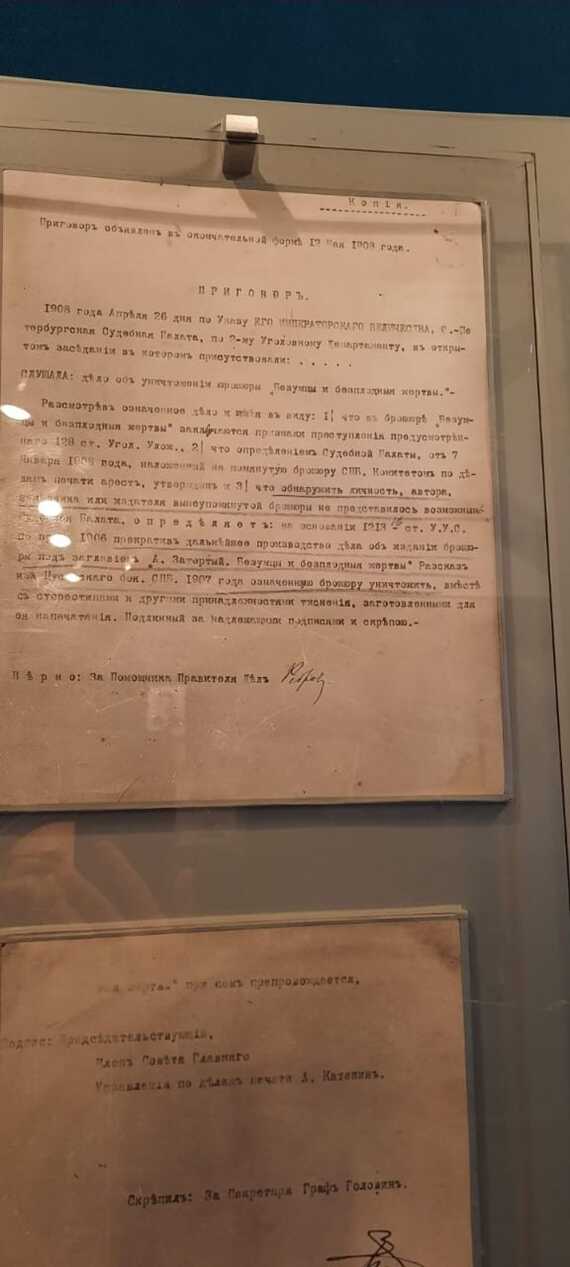 Копія.
Приговоръ объявленъ въ окончательной формѣ 12 Мая 1908 года.
ПРИГОВОРЪ.
1908 года Апрѣля 26 дня по Указу ЕГО ИМПЕРАТОРСКАГО ВЕЛИЧЕСТВА, С.-Пе
тербургская Судебная Палата, по 2-му Уголовному Департаменту, въ откры-
томъ засѣданіи въ которомъ присутствовали: . . . . .
СЛУШАЛА: дѣло объ уничтоженіи брошюры „Безумцы и безплодныя жертвы."-
Разсмотрѣвъ означенное дѣло и имѣя въ виду: 1/ что въ брошюрѣ „Безум-
цы и безплодныя жертвы" заключаются признаки преступленія предусмотрѣн-
наго 128 ст. Угол. Улож., 2/ что опредѣленіемъ Судебной Палаты, отъ 7
Января 1908 года, наложенный на помянутую брошюру СПБ. Комитетомъ по дѣ-
ламъ печати арестъ, утвержденъ и 3/ что обнаружить личность, автора,
или издателя вышеупомянутой брошюры не представилось возможнымъ
Палата, опредѣляетъ: на основаніи 1213 ст. У.У.С.
по 1906 прекративъ дальнѣйшее производство дѣла объ изданіи брошю-
ры подъ заглавіемъ „А. Затертый. Безумцы и безплодныя жертвы" Разсказ
изъ бок. СПБ. 1907 года означенную брошюру уничтожить, вмѣстѣ
съ стереотипами и другими принадлежностями тисненія, заготовленными для
ея напечатанія. Подлинный за надлежащими подписями и скрѣпою.-
Вѣрно: За Помощника Правителя Дѣлъ
при семъ препровождается,
Предсѣдательствующій,
Членъ Совѣта Главнаго
Управленія по дѣламъ печати А. Катенинъ.
Скрѣпилъ: За Секретаря Графъ Головинъ.